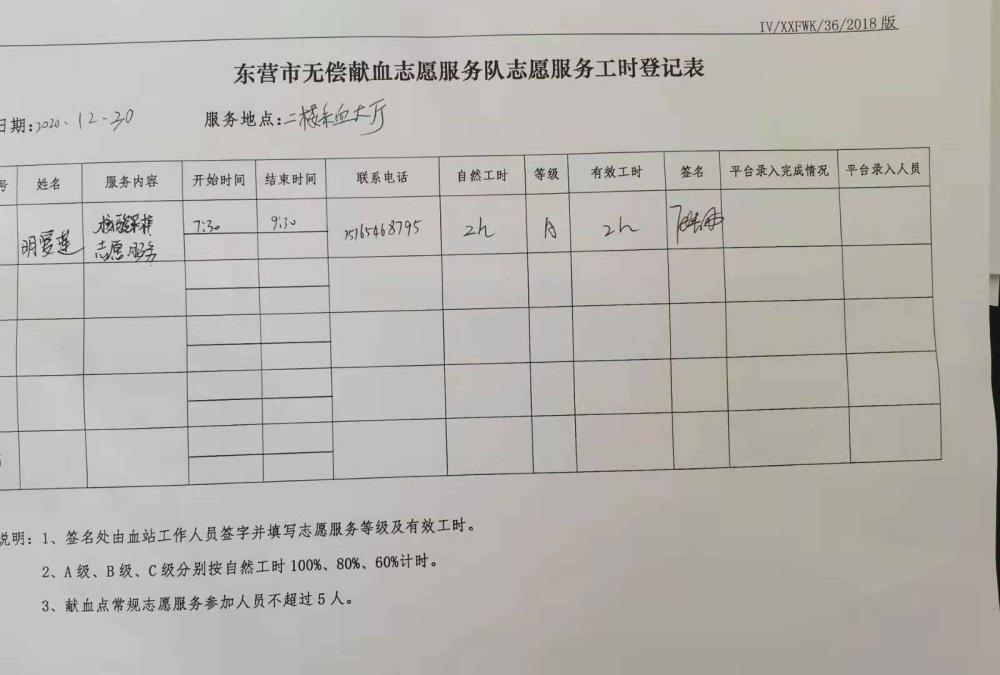 IV/XXFWK/36/2018版
东营市无偿献血志愿服务队志愿服务工时登记表
日期:2020.12-30 服务地点:二楼采血大厅
号 姓名 服务内容 开始时间 结束时间 联系电话 自然工时 等级 有效工时 签名 平台录入完成情况 平台录入人员
明爱莲 志愿服务 7:30 9:30 15165468795 2h A 2h
说明:1、签名处由血站工作人员签字并填写志愿服务等级及有效工时。
2、A级、B级、C级分别按自然工时100%、80%、60%计时。
3、献血点常规志愿服务参加人员不超过5人。